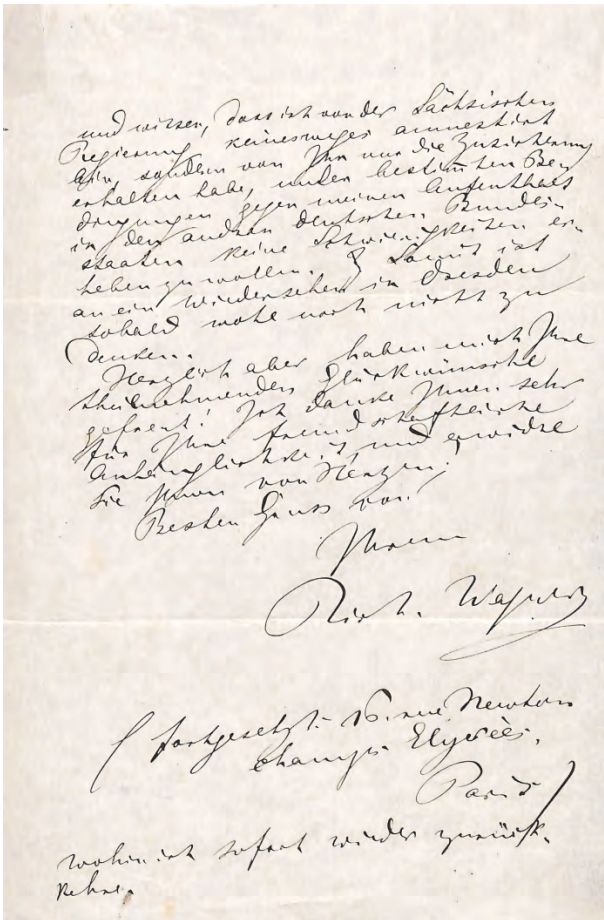 und wissen, dass ich von der Sächsischen
Regierung keinesweges amnestirt
bin, sondern von Ihr nur die Zusicherung
erhalten habe, unter bestimten Be-
dingungen gegen meinen Aufenthalt
in den andren deutschen Bundes-
staaten keine Schwierigkeiten er-
heben zu wollen. Somit ist
an ein Wiedersehen in Dresden
sobald wohl noch nicht zu
denken.
Herzlich aber haben mich Ihre
theilnehmenden Glückwünsche
gefreut! Ich danke Ihnen sehr
für Ihre freundschaftliche
Anhänglichkeit, und erwidre
sie Ihnen von Herzen!
Besten Gruss von
Ihrem
Rich. Wagner
(fortgesetzt: 16. rue Newton
champs Elysées.
Paris)
wohin ich sofort wieder zurück-
kehre.